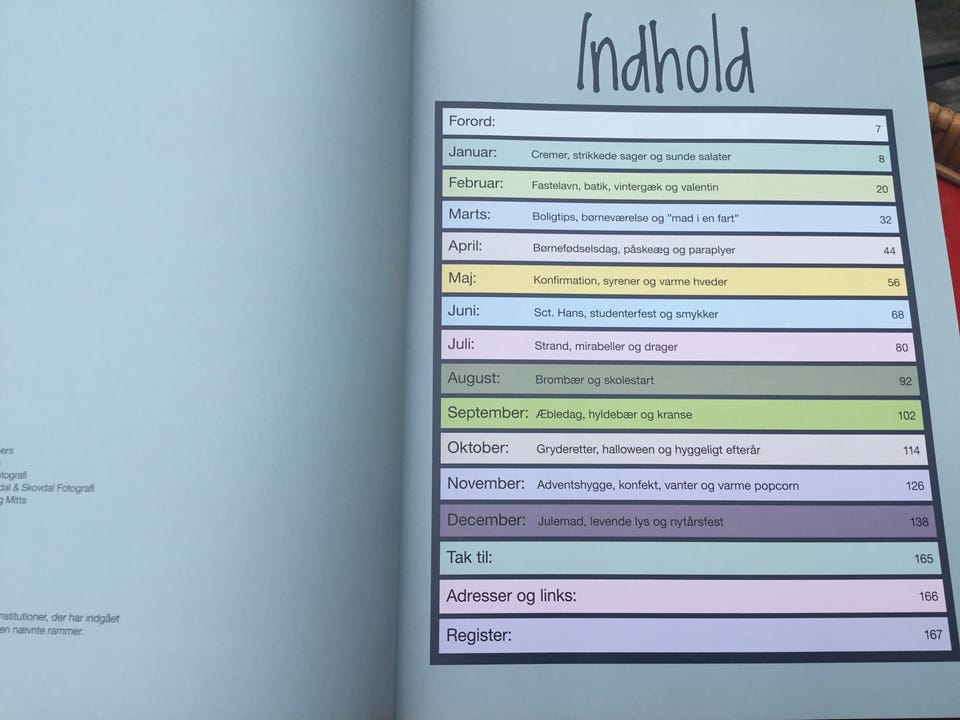 ers
tografi
dal & Skovdal Fotografi
g Mitts
nstitutioner, der har indgået
en nævnte rammer.
Indhold
Forord: 7
Januar: Cremer, strikkede sager og sunde salater 8
Februar: Fastelavn, batik, vintergæk og valentin 20
Marts: Boligtips, børneværelse og "mad i en fart" 32
April: Børnefødselsdag, påskeæg og paraplyer 44
Maj: Konfirmation, syrener og varme hveder 56
Juni: Sct. Hans, studenterfest og smykker 68
Juli: Strand, mirabeller og drager 80
August: Brombær og skolestart 92
September: Æbledag, hyldebær og kranse 102
Oktober: Gryderetter, halloween og hyggeligt efterår 114
November: Adventshygge, konfekt, vanter og varme popcorn 126
December: Julemad, levende lys og nytårsfest 138
Tak til: 165
Adresser og links: 166
Register: 167